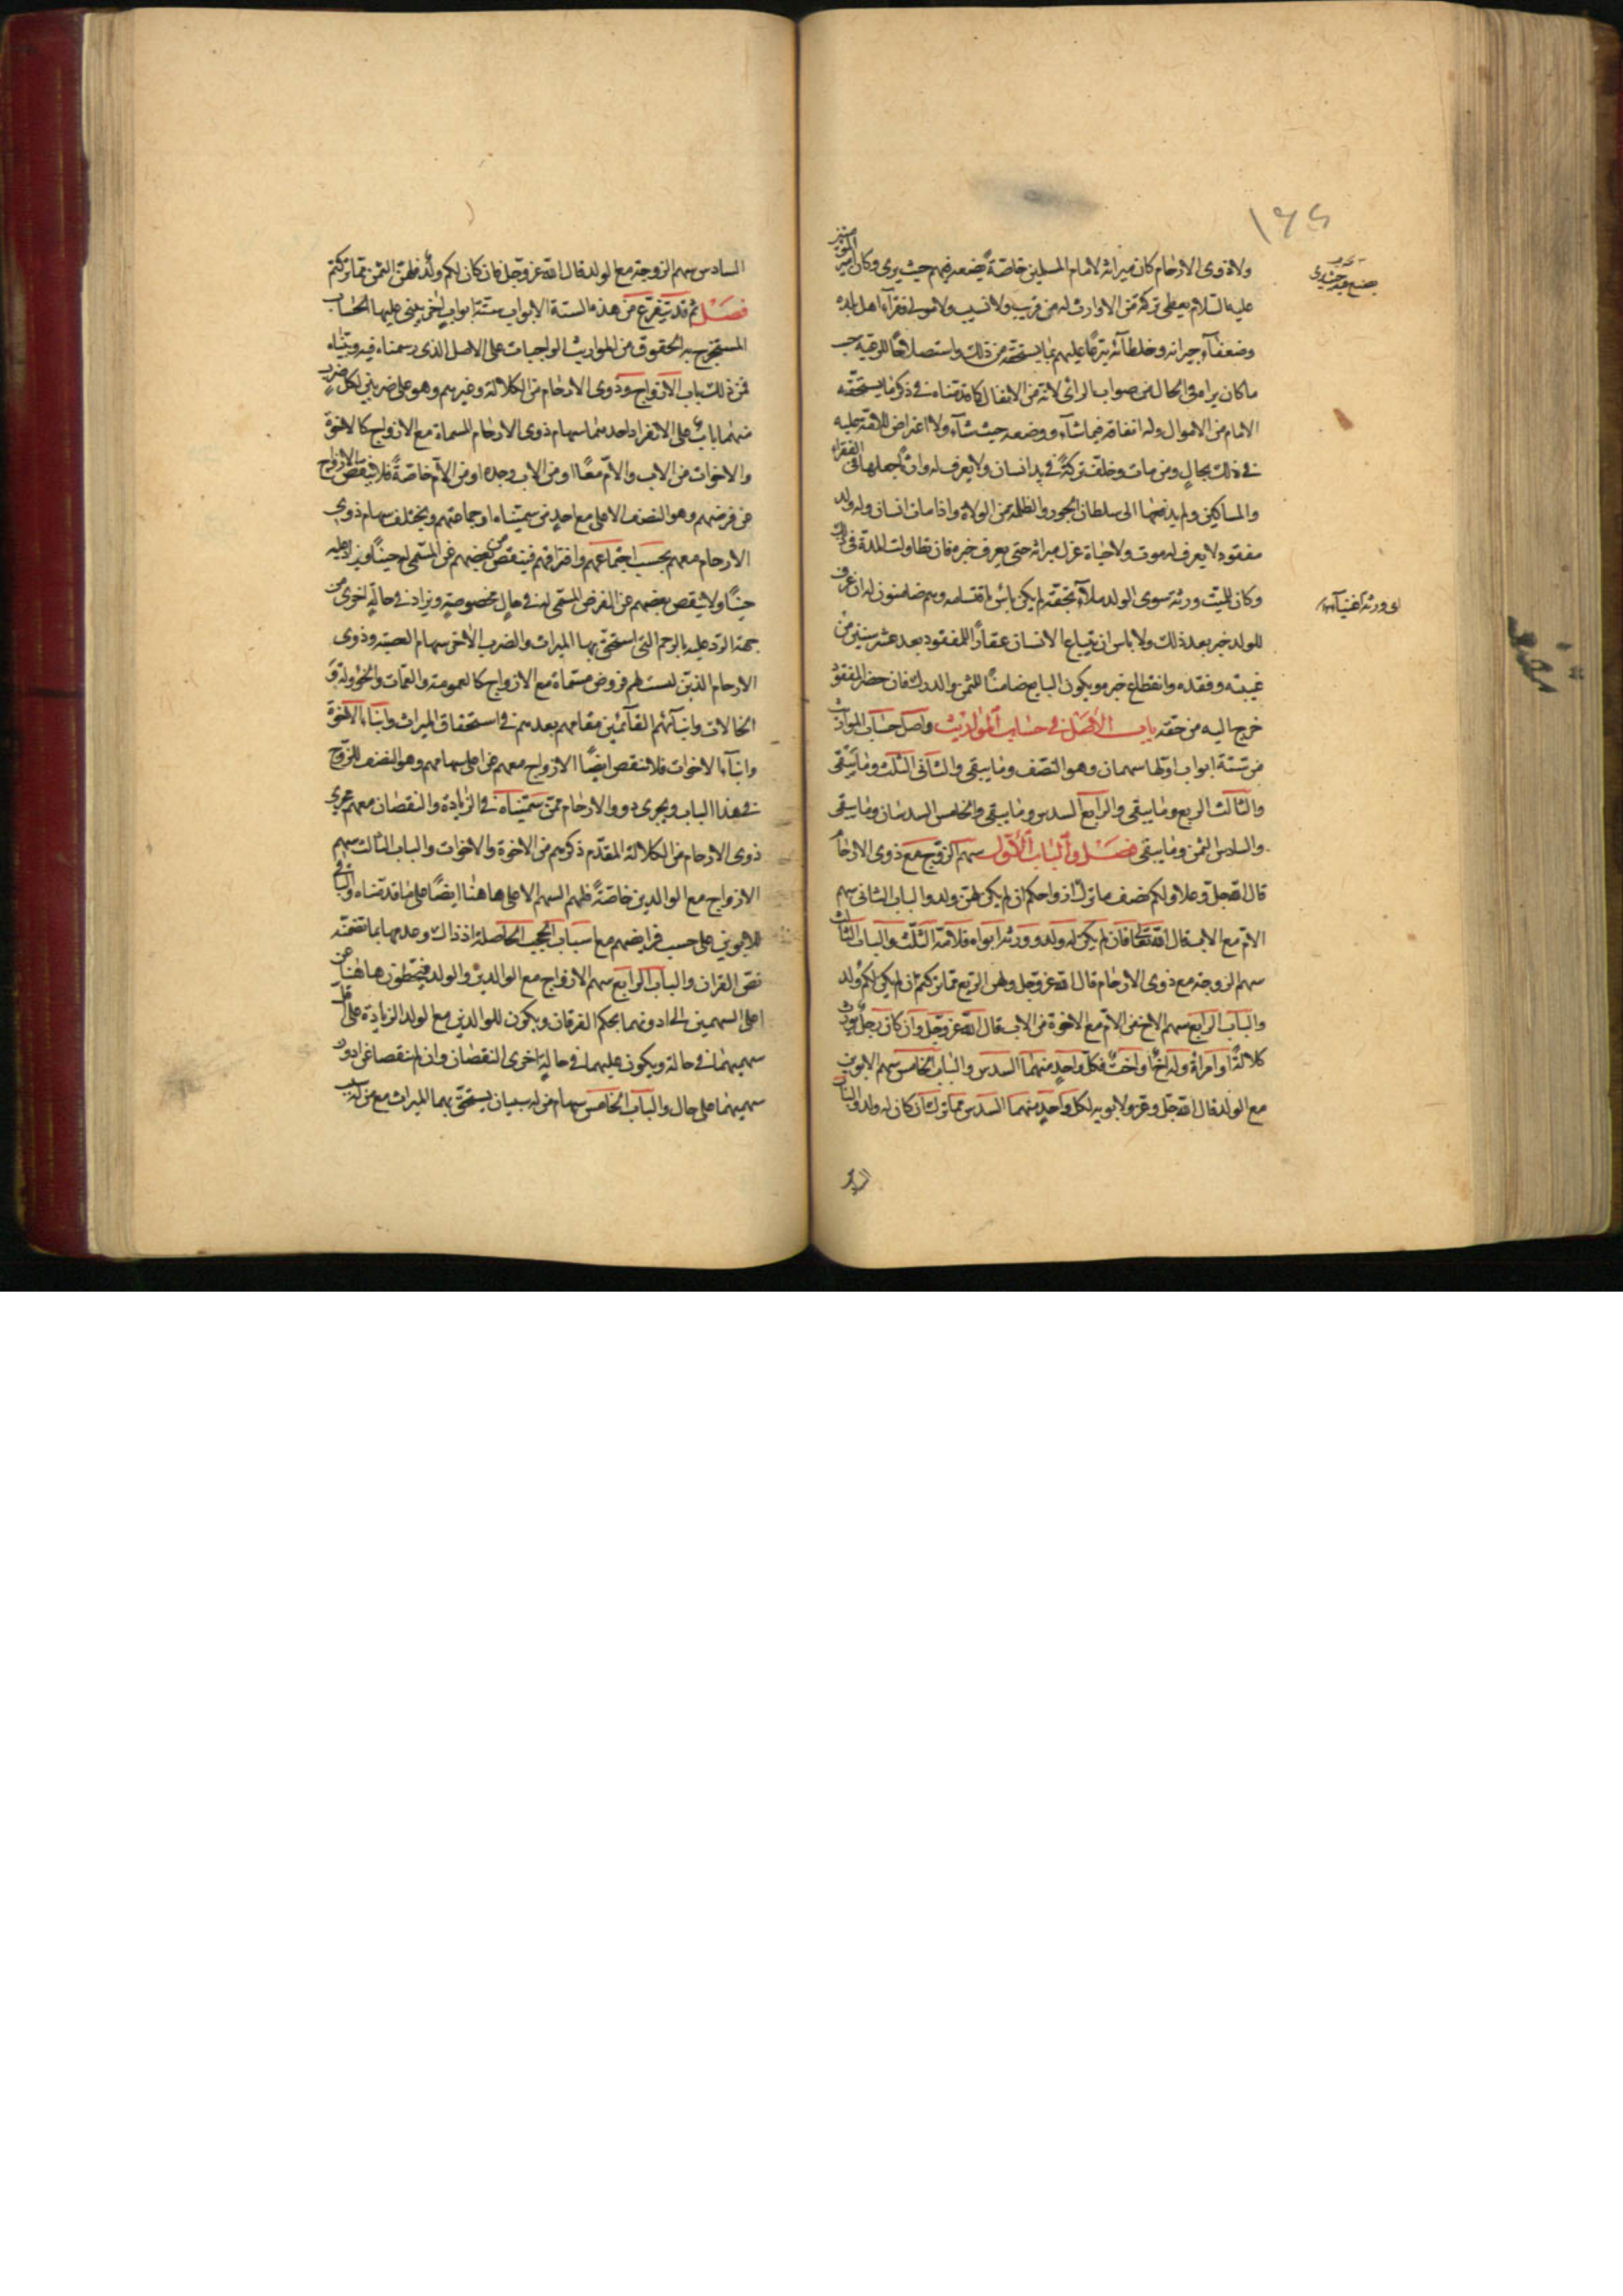 ١٦٤
ولا ذوى الارحام كان ميراثه لامام المسلمين خاصة يضعه فيهم حيث يرى وكان امير المؤمنين
عليه السلام يعطى تركة من لا وارث له من قريب ولا نسيب ولا مولى لفقرآء اهل بلده
وضعفآء جيرانه وخلطآئه تبرعًا عليهم بما يستحقه من ذلك واستصلاحًا للرعية حسب
ما كان يراه فى الحال من صواب الرائى لانه من الانفال كما قدمناه فى ذكر ما يستحقه
الامام من الاموال وله انفاقه فيما شآء ووضعه حيث شآء ولا اعتراض للامة عليه
فى ذلك بحالٍ ومن مات وخلف تركةً فى يد انسان ولا يعرف له وارثًا جعلها فى الفقراء
والمساكين ولم يدفعها الى سلطان الجور والظلمة من الولاة واذا مات انسان وله ولد
مفقود لا يعرف له موت ولا حيٰاة عزل ميراثه حتى يعرف خبره فان تطاولت المدة فى ذلك
وكان للميت ورثة سوى الولد ملآء بحقه لم يكن باس باقتسامه وهم ضامنون له ان عرف
للولد خبر بعد ذلك ولا باس ان يبتاع الانسان عقار المفقود بعد عشر سنين من
غيبته وفقده وانقطاع خبره ويكون البايع ضامنًا للثمن والدرك فان حضر المفقود
خرج اليه من حقه باب الأصل فى حساب المواريث واصل حساب المواريث
من ستة ابواب اولها سهمان وهو النصف وما يبقى والثانى الثلث وما يبقى
والثالث الربع وما يبقى والرابع السدس وما يبقى والخامس السدسان وما يبقى
والسادس الثمن وما يبقى فصل والباب الأول سهم الزوج مع ذوى الارحام
قال الله جل وعلا ولكم نصف ما ترك ازواجكم ان لم يكن لهن ولد والباب الثانى سهم
الام مع الاب قال الله تعالى فان لم يكن له ولد وورثه ابواه فلامه الثلث والباب الثالث
سهم الزوجة مع ذوى الارحام قال الله عز وجل ولهن الربع مما تركتم ان لم يكن لكم ولد
والباب الرابع سهم الاخ من الام مع الاخوة من الاب قال الله عز وجل وان كان رجل يورث
كلالةً او امراة وله اخ او اخت فلكل واحدٍ منهما السدس والباب الخامس سهم الابوين
مع الولد قال الله جل وعز ولابويه لكل واحدٍ منهما السدس مما ترك ان كان له ولد والباب
او ورثة اغنيآء
السادس سهم الزوجة مع الولد قال الله عز وجل فان كان لكم ولد فلهن الثمن مما تركتم
فصل ثم قد يتفرع من هذه الستة الابواب ستة ابواب اخر يبنى عليها الحساب
المستخرج به الحقوق من المواريث الواجبات على الاصل الذى رسمناه فيه وبيناه
فمن ذلك باب الازواج وذوى الارحام من الكلالة وغيرهم وهو على ضربين لكل ضرب
منهما باب على الانفراد احدهما سهام ذوى الارحام المسماة مع الازواج كالاخوة
والاخوات من الاب والام معًا او من الاب وحده او من الام خاصة فلا ينقص الازواج
من فرضهم وهو النصف الاعلى مع احدٍ من سميناه او جماعتهم ويختلف سهام ذوى
الارحام معهم بحسب اجتماعهم وافتراقهم فينقص بعضهم من المسمى له حينًا ويزاد عليه
حينًا ولا ينقص بعضهم عن الفرض المسمى له فى حالٍ مخصوصةٍ ويزاد فى حالةٍ اخرى من
جهة الرد عليه بالرحم التى استحق بها الميراث والضرب الاخر سهام العصبة وذوى
الارحام الذين ليست لهم فروض مسماة مع الازواج كالعمومة والعمات والخؤولة و
الخالات وابنآئهم القآئمين مقامهم بعدهم فى استحقاق الميراث وابنآء الاخوة
وابنآء الاخوات فلا تنقص ايضًا الازواج معهم عن اعلى سهامهم وهو النصف للزوج
فى هذا الباب ويجرى ذوو الارحام ممن سميناه فى الزيادة والنقصان معهم مجرى
ذوى الارحام من الكلالة المقدم ذكرهم من الاخوة والاخوات والباب الثالث سهم
الازواج مع الوالدين خاصةً فلهم السهم الاعلى هاهنا ايضًا على ما قدمناه والباقى
للابوين على حسب فرايضهم مع اسباب الحجب الحاصلة اذ ذاك وعدمها بما تضمنه
نص القران والباب الرابع سهم الازواج مع الوالدين والولد فيحطون هاهنا عن
اعلى السهمين الى ادونهما بحكم الفرقان ويكون للوالدين مع الولد الزيادة على اقل
سهميهما فى حالة ويكون عليهما فى حالةٍ اخرى النقصان وان لم ينقصا عن ادون
سهميهما على حال والباب الخامس سهام من له سببان يستحق بهما الميراث مع من له سبب